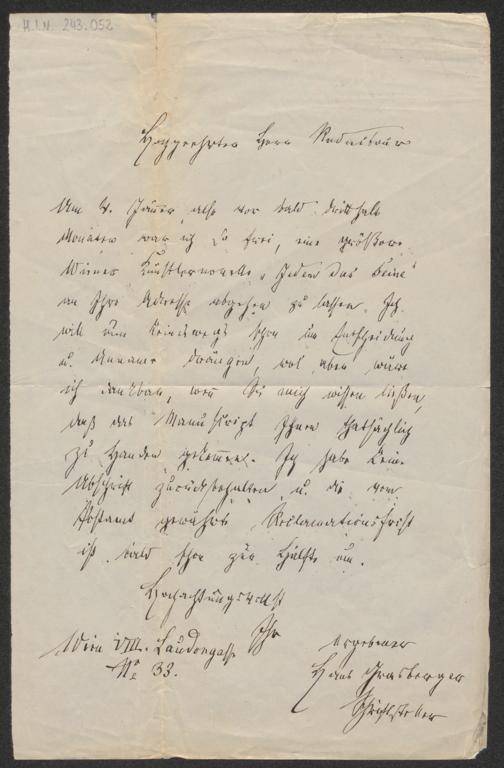 H.I.N. 243.052
Hochgeehrter Herr Redakteur
Am 4. Jänner, also vor bald dritthalb
Monaten war ich so frei, eine größere
Wiener Künstlernovelle „Jedem das Seine"
an Ihre Adresse abgehen zu lassen. Ich
will nun keineswegs schon um Entscheidung
u. Annahme drängen, wol aber wäre
ich dankbar, wenn Sie mich wissen ließen,
daß das Manuskript Ihnen thatsächlich
zu Handen gekommen. Ich habe keine
Abschrift zurückbehalten u. die vom
Postamt gewährte Reclamationsfrist
ist bald schon zur Hälfte um.
Hochachtungsvollst
Ihr
ergebener
Wien VIII. Laudongasse
No 33.
Hans Grasberger
Schriftsteller